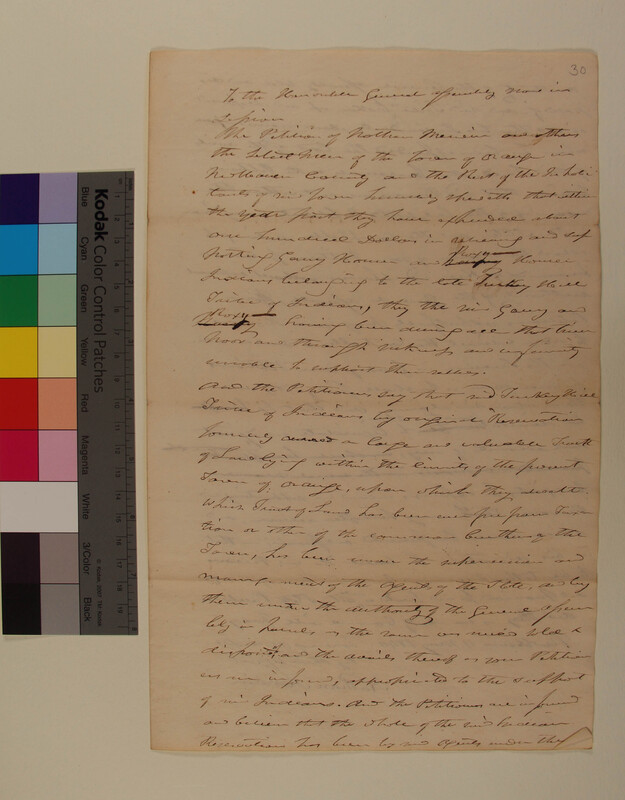 30
To the Honorable General Assembly now in
Session
The Petition of Nathan Merwin and others
the Select Men of the Town of Orange in
New Haven County and the Rest of the Inhabi
tants of sd Town humbly sheweth that within
the year past they have expended about
one hundred Dollars in relieving and sup
porting Garry Homer and Roxy Homer
Indians belonging to the late Turkey Hill
Tribe of Indians, they the sd Garry and
Roxy having been during all that time
Poor and through sickness and infirmity
unable to support themselves.
And the Petitioners say that sd Turkey Hill
Tribe of Indians by original Reservation
formerly owned a large and valuable Tract
of Land lying within the limits of the present
Town of Orange, upon which they dwelt
which Tract of Land has been exempt from Taxa
tion or other of the common burthens of the
Town, has been under the supervision and
management of the Agents of the State, and by
them under the Authority of the General Assem
bly in parcels as the same was sold &
disposed, and the avails thereof as your Petition
ers are informed, appropriated to the support
of sd Indians. And the Petitioners are informed
and believe that the whole of the sd Indian
Reservation has been by sd Agents under the
Kodak Color Control Patches
Blue
Cyan
Green
Yellow
Red
Magenta
White
3/Color
Black